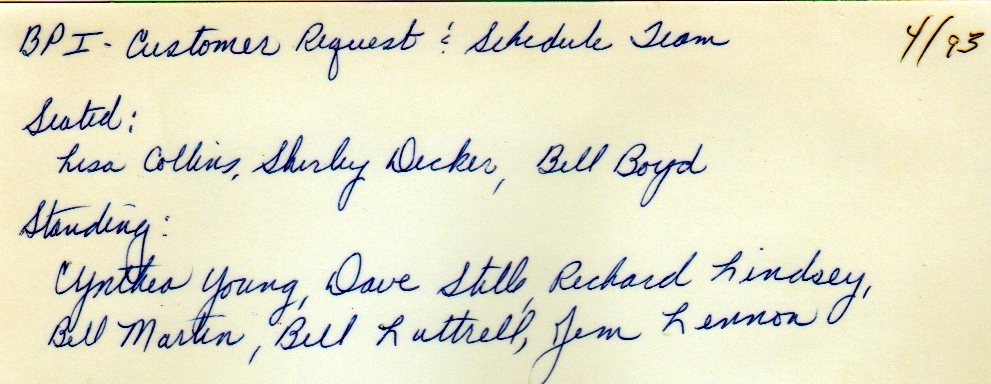 BPI - Customer Request & Schedule Team 4/93
Seated:
Lisa Collins, Shirley Decker, Bill Boyd
Standing:
Cynthia Young, Dave Still, Richard Lindsey,
Bill Martin, Bill Luttrell, Jim Lennon